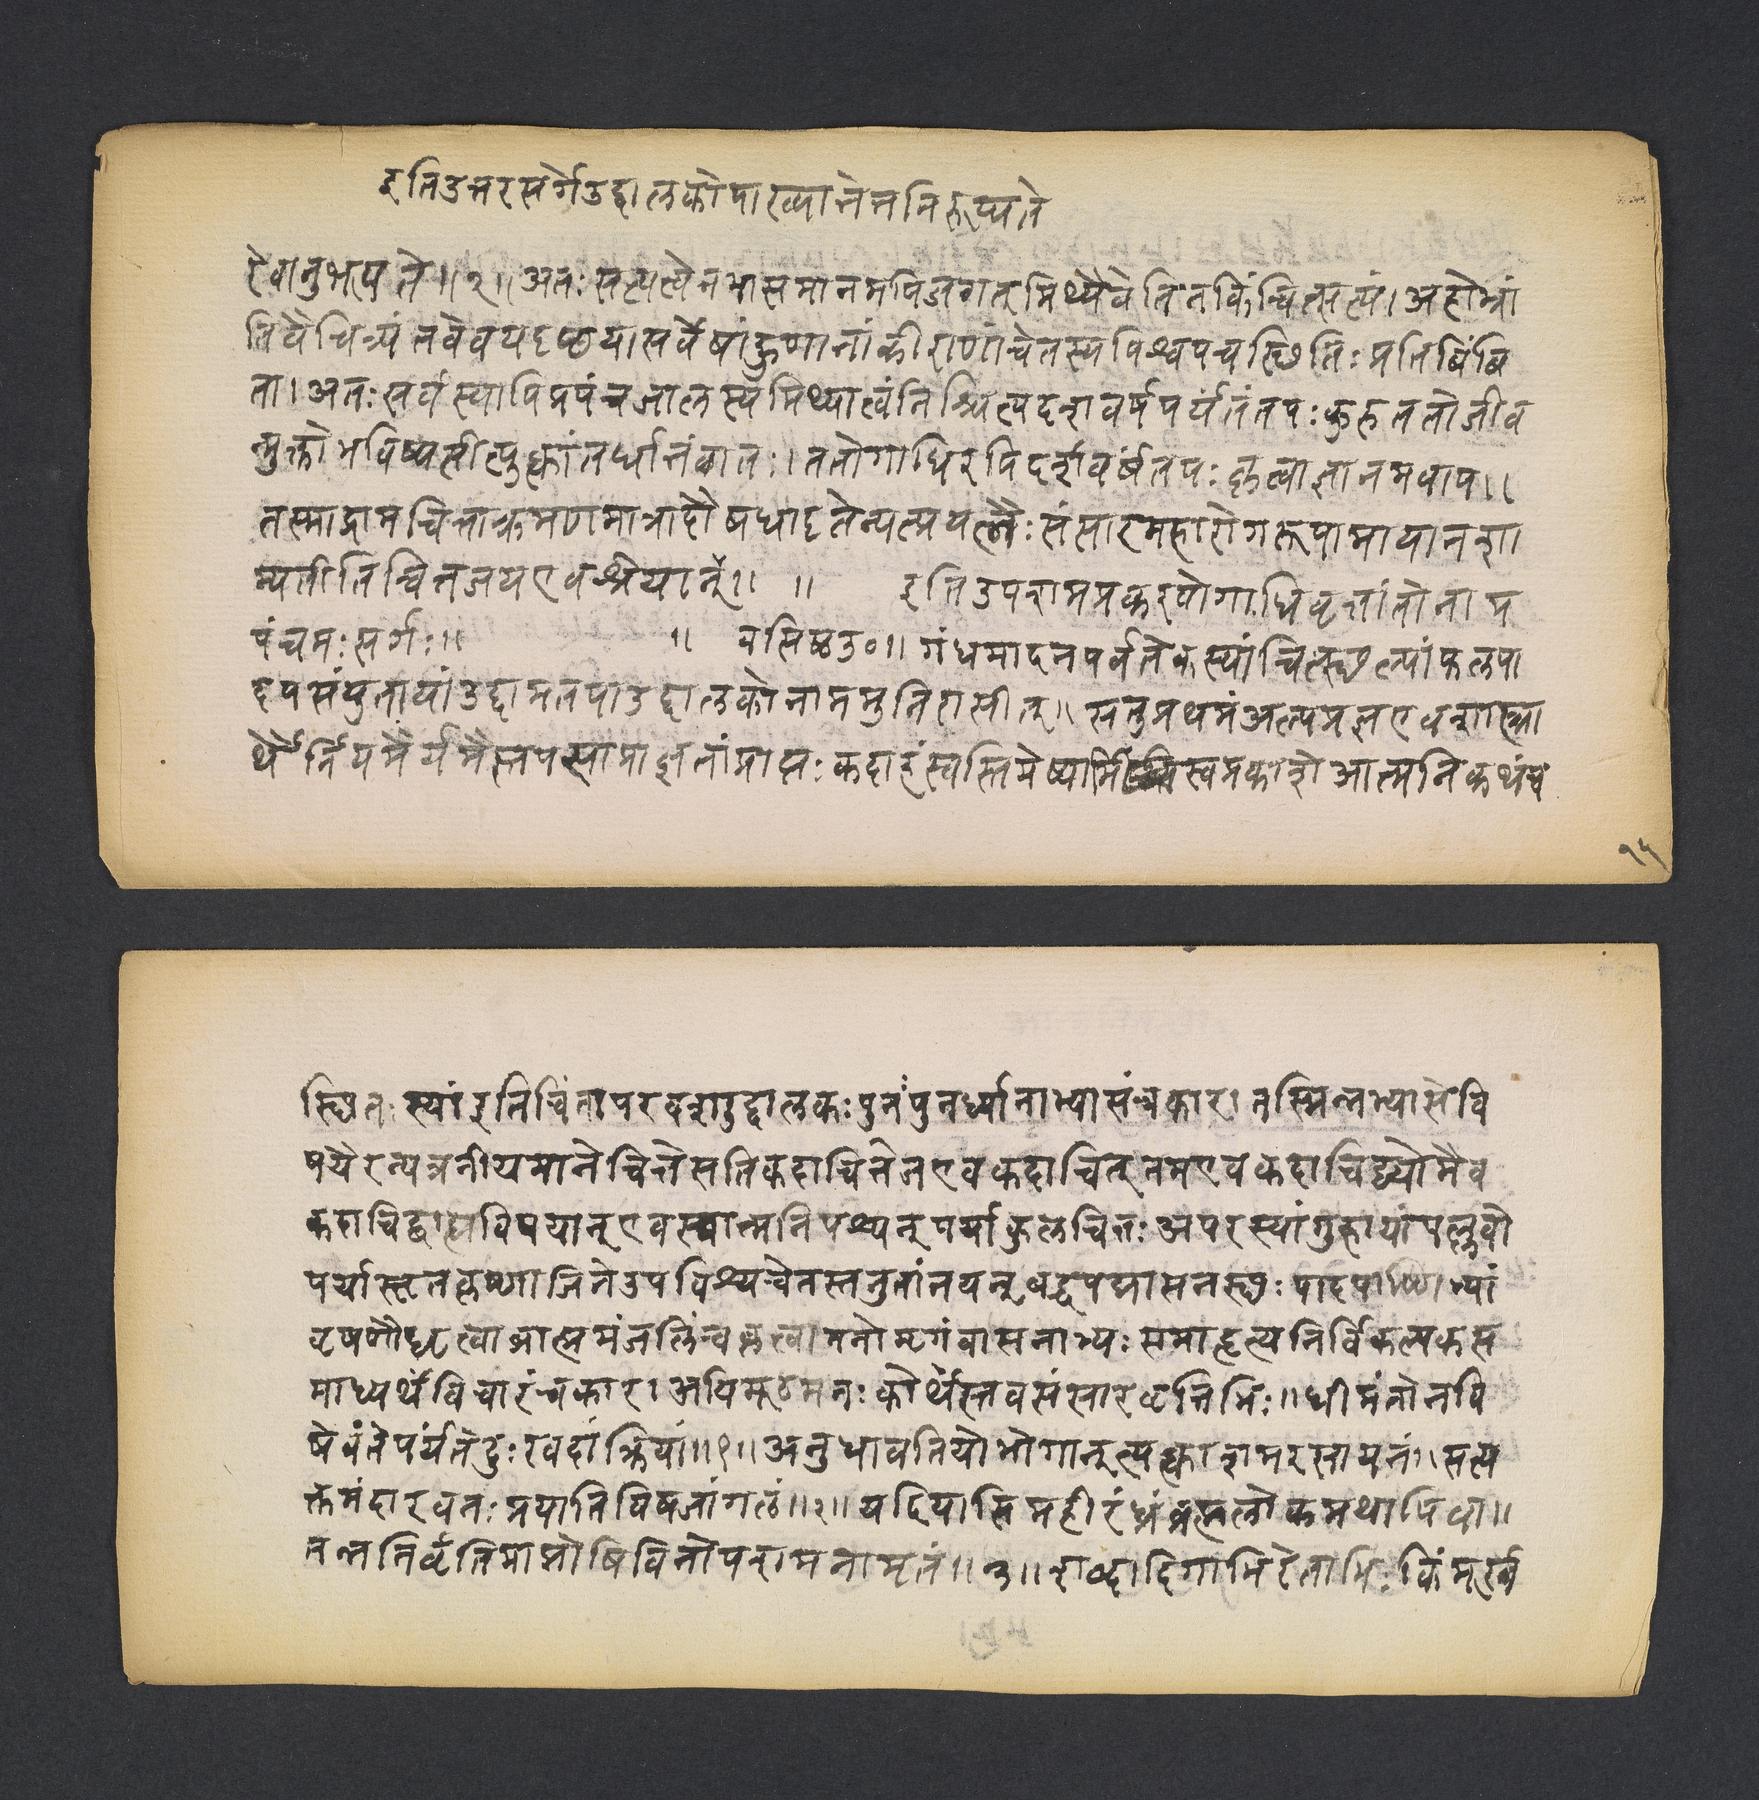 इतिउत्तरसर्गेउद्दालकोपाख्यानेननिरूप्यते
रेवानुभूयते॥२॥अतःसत्यत्वेनभासमानमपिजगत्मिथ्यैवेतिनकिंचित्सत्यं।अहोभ्रां
तिवैचित्र्यं सर्वेषांहूणानांकीराणांचेतस्यपिश्वपचस्थितिःप्रतिबिंबि
ता।अतःसर्वस्यापिप्रपंचजालस्यमिथ्यात्वंनिश्चित्यदशवर्षपर्यंतंतपःकुरुततोजीव
न्मुक्तोभविष्यसीत्युक्त्वांतर्धानंगतः।ततोगाधिरपिदशवर्षंतपःकृत्वाज्ञानमवाप॥
तस्माद्रामचित्ताक्रमणमात्रादौषधादृतेन्यत्प्रयत्नैःसंसारमहारोगरूपामायानशा
म्यतीतिचित्तजयएवश्रेयान्॥ ॥ इतिउपशमप्रकरणेगाधिवृत्तांतोनाम
पंचमःसर्गः॥ ॥ वसिष्ठउ०॥गंधमादनपर्वतेकस्यांचित्स्थल्यांफलपा
दपसंयुतायांउद्दामतपाउद्दालकोनाममुनिरासीत्॥सतुप्रथमंअल्पप्रज्ञएवशास्त्रा
र्थैर्नियमैर्यमैस्तपसाप्राज्ञतांप्राप्तःकदाहं स्वप्रकाशेआत्मनिकथंच
१५
स्थितःस्यांइतिचिंतापरवशउद्दालकःपुनंपुनर्ध्यानाभ्यासंचकार।तस्मिन्नभ्यासेवि
षयैरन्यत्रनीयमानेचित्तेसतिकदाचित्तेजएवकदाचित्तमएवकदाचिद्व्योमैव
कदाचिद्बाह्यविषयान्एवस्वात्मनिपश्यन्पर्याकुलचित्तःअपरस्यांगुहायांपल्लवौ
पर्यास्तृतकृष्णाजिनेउपविश्यचेतस्तनुतांनयन्बद्धपद्मासनस्थःपादपार्ष्णिभ्यां
वृषणौधृत्वाब्राह्ममंजलिंचकृत्वामनोमृगंवासनाभ्यःसमाहृत्यनिर्विकल्पकस
माध्यर्थंविचारंचकार।अयिमूढमनःकोर्थस्तवसंसारवृत्तिभिः॥धीमंतोनवि
षेवंतेपर्यंतेदुःखदांक्रियां॥१॥अनुधावतियोभोगान्त्यक्त्वाशमरसायनं॥सत्य
क्तमंदारवनःप्रयातिविषजांगलं॥२॥यदियासिमहीरंध्रंब्रह्मलोकमथापिवा॥
तन्ननिर्वृतिमाप्नोषिविनोपशमनामृतं॥३॥शब्दादिगाभिरेताभिःकिंमूर्ख